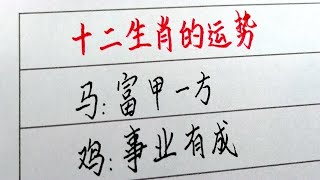 十二生肖的运势
马:富甲一方
鸡:事业有成